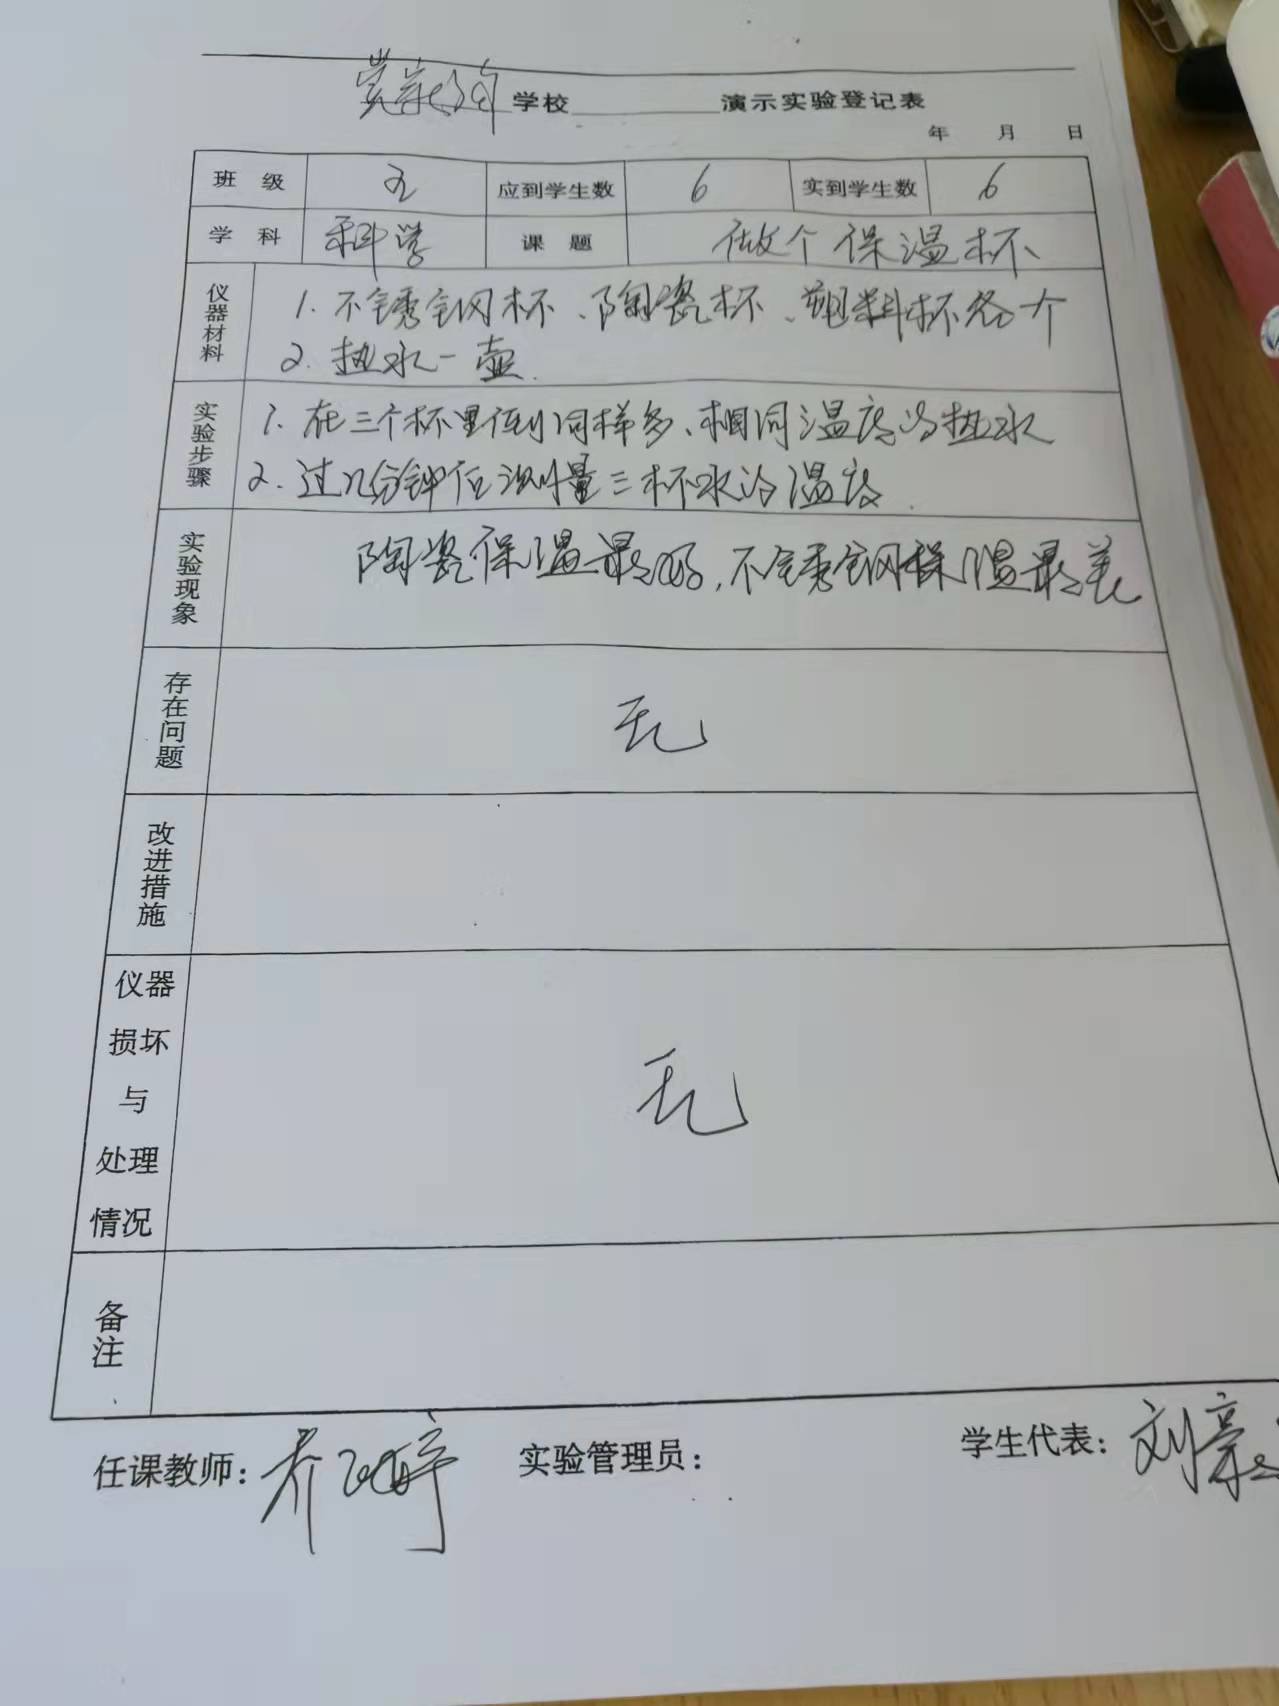 学校________演示实验登记表
年 月 日
班 级 五 应到学生数 6 实到学生数 6
学 科 科学 课 题 做个保温杯
仪器材料 1. 不锈钢杯、陶瓷杯、塑料杯各一个
2. 热水一壶.
实验步骤 1. 在三个杯里倒同样多、相同温度的热水
2. 过几分钟后测量三杯水的温度.
实验现象 陶瓷保温最好,不锈钢保温最差
存在问题 无
改进措施
仪器
损坏
与
处理
情况
无
备注
任课教师: 实验管理员: 学生代表: 刘豪